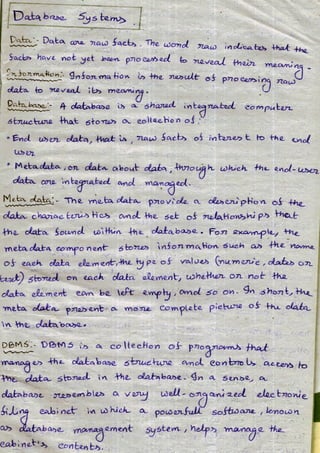 Database Systems
Data:- Data are raw facts. The word raw indicates that the
facts have not yet been processed to reveal their meaning.
Information:- Information is the result of processing raw
data to reveal its meaning.
Database:- A database is a shared integrated computer
structure that stores a collection of:
• End user data, that is, raw facts of interest to the end
user
• Metadata, or data about data, through which the end-user
data are integrated and managed.
Meta data:- The metadata provide a description of the
data characteristics and the set of relationships that
the data found within the database. For example, the
metadata component stores information such as the name
of each data element, the type of values (numeric, dates or
text) stored on each data element, whether or not the
data element can be left empty, and so on. In short, the
meta data present a more complete picture of the data
in the database.
DBMS:- DBMS is a collection of programs that
manages the database structure and controls access to
the data stored in the database. In a sense, a
database resembles a very well-organized electronic
filing cabinet in which a powerfull software, known
as database management system, helps manage the
cabinet's contents.